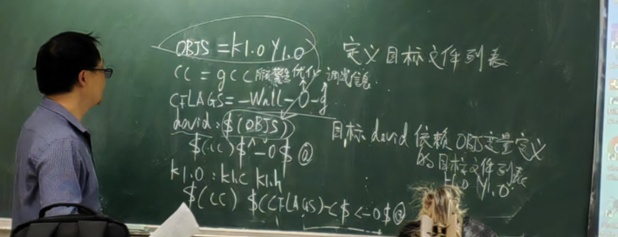 OBJS = k1.o y1.o 定义目标文件列表
CC = gcc 优化 调试信息
CFLAGS = -Wall -O -g
david: $(OBJS) 目标david依赖OBJS变量定义
的目标文件列表
$(CC) $^ -o $@ k1.o y1.o
k1.o : k1.c k1.h
$(CC) $(CFLAGS) -c $< -o $@